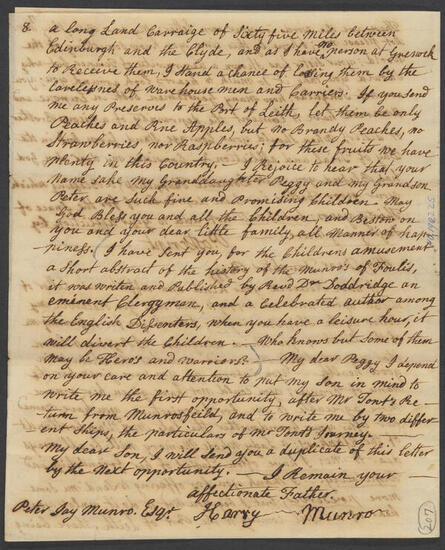 8. a long Land Carraige of Sixty five Miles between
Edinburgh and the Clyde, and as I have no person at Greenock
to Receive them, I stand a chance of losing them by the
Carelessness of ware house men and Carriers. If you send
me any Preserves to the Port of Leith, let them be only
Peaches and Pine Apples, but no Brandy Peaches, no
Strawberries, nor Raspberries; for these fruits we have
plenty in this Country, — I Rejoice to hear that your
Name sake My Granddaughter Peggy and my Grandson
Peter are Such fine and Promising Children. May
God Bless you and all the Children, and Bestow on
you and your dear little family, all Manner of hap
piness. I have Sent you, for the Childrens amusement
a Short abstract of the history of the Munro's of Foulis,
it was writen and Published by Revd Dr Doddridge an
eminent Clergyman, and a Celebrated author among
the English Dissenters, when you have a leisure hour, it
will divert the Children. — Who knows but Some of them
May be Heros and warriors? — My dear Peggy I depend
on your care and attention to put my Son in mind to
write me the first opportunity, after Mr Tont's Re-
turn from Munrosfeild, and to write me by two differ
ent Ships, the particulars of Mr Tont's Journey.
My dear Son, I will Send you a duplicate of this letter
by the Next opportunity. — I Remain your
affectionate Father.
Peter Jay Munro. Esqr. Harry Munro
207